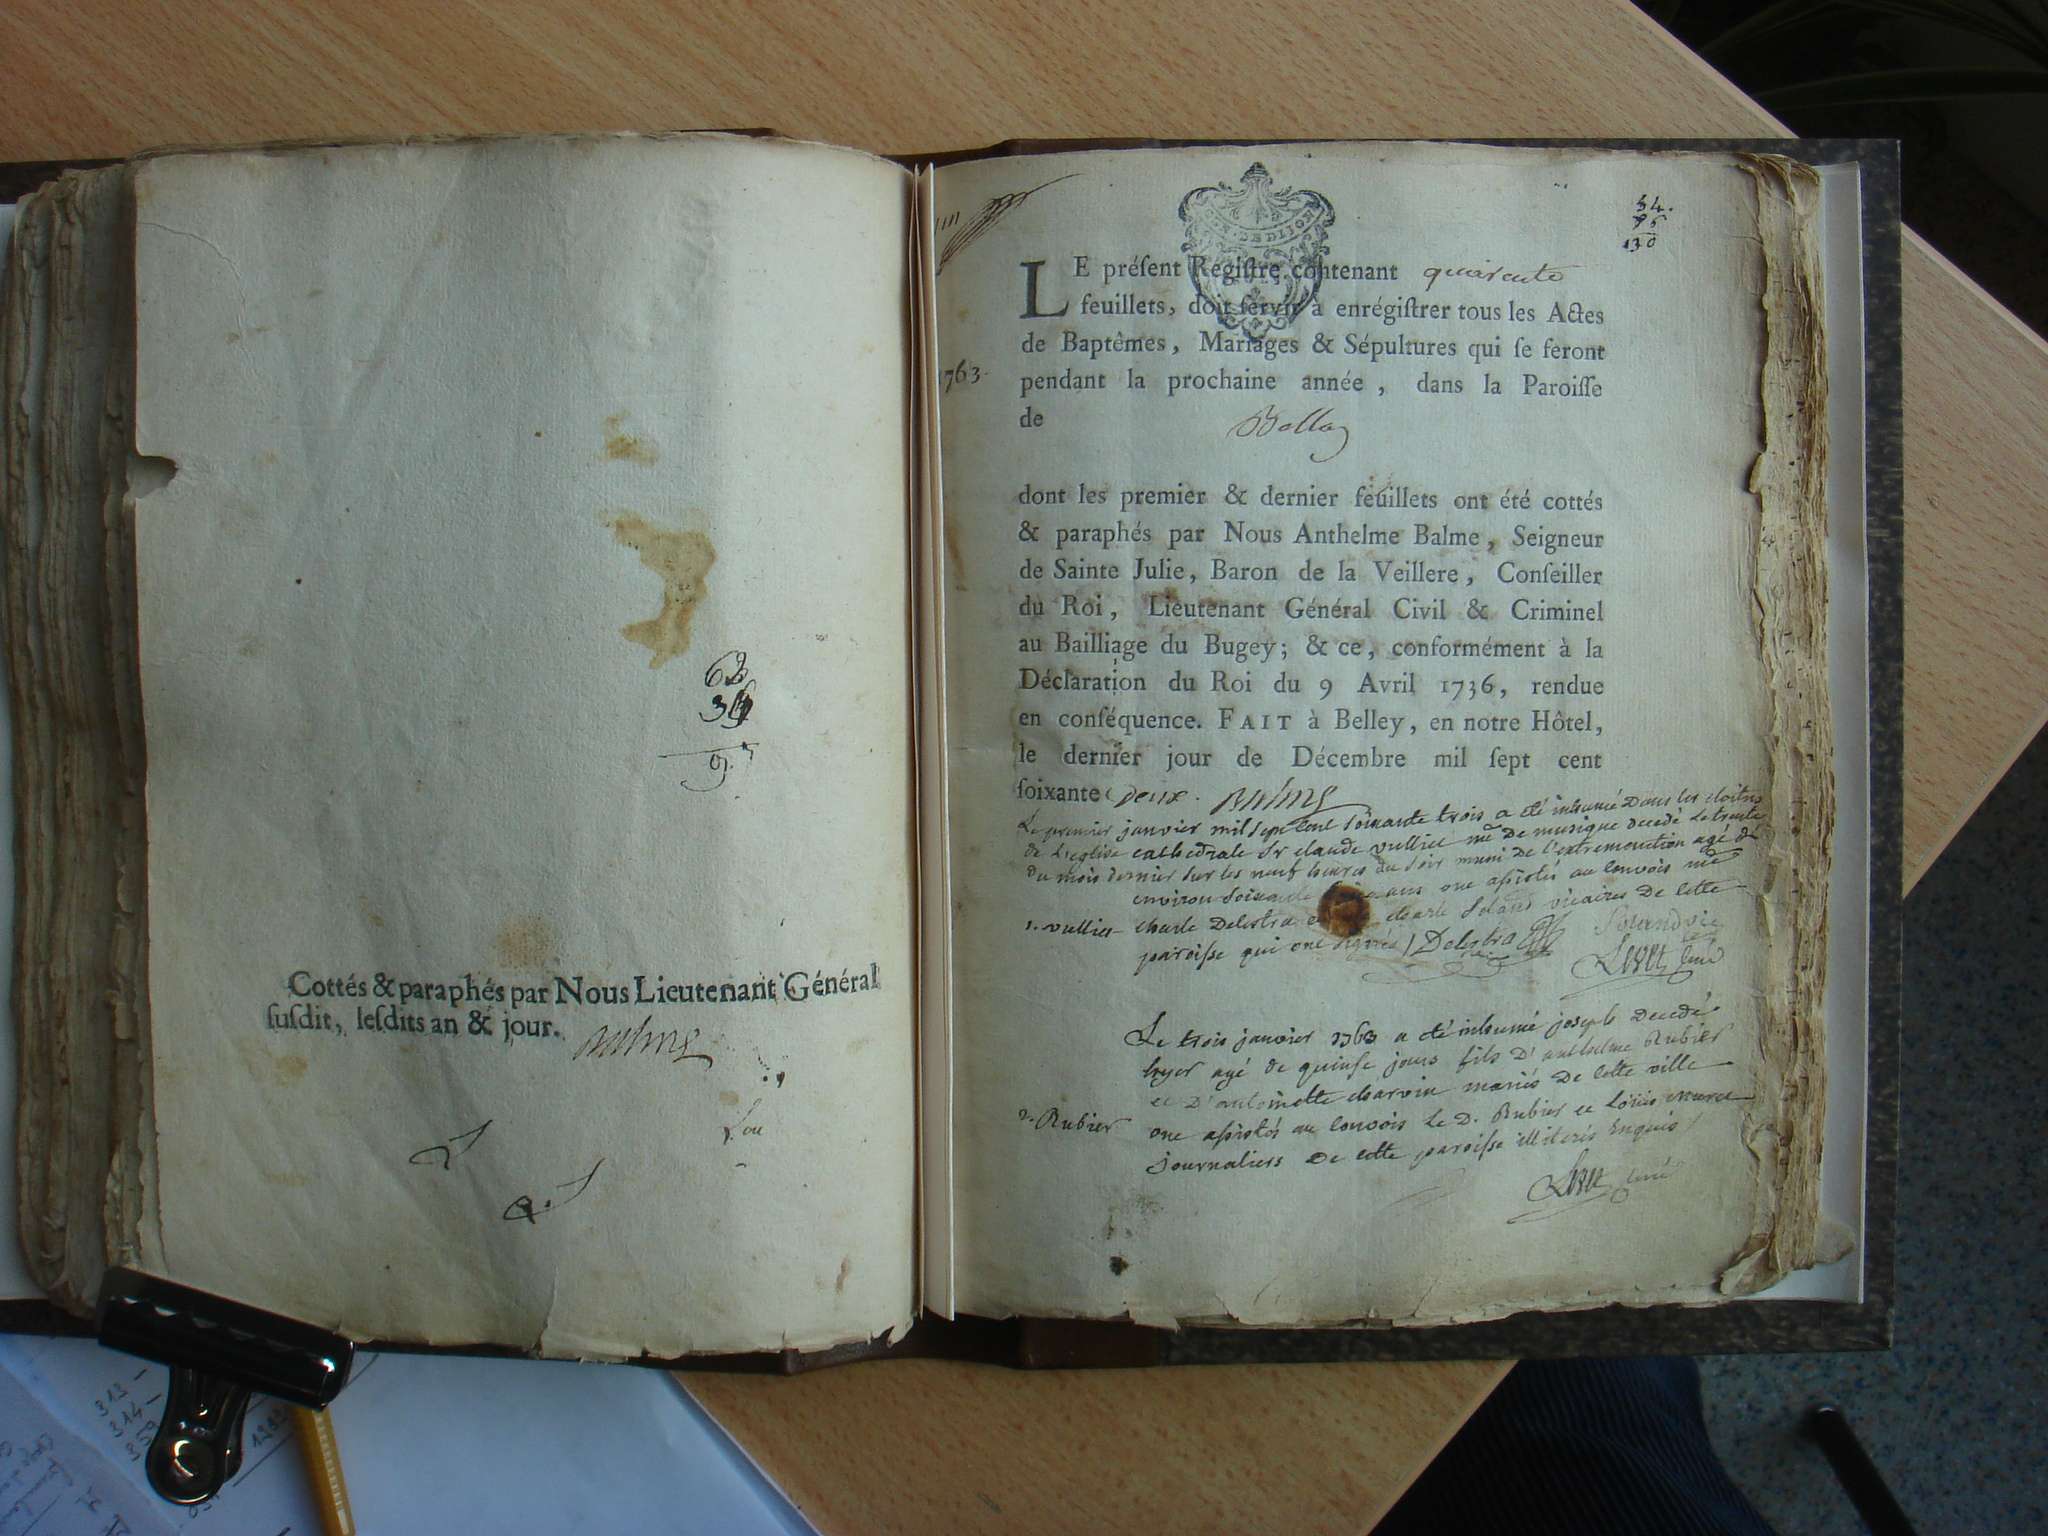 62
36
97
Cottés & paraphés par Nous Lieutenant Général
ſuſdit, leſdits an & jour. Balme
GE. DE DIJON
34.
96
130
LE préſent Regiſtre contenant quarente
feuillets, doit ſervir à enrégiſtrer tous les Actes
de Baptêmes, Mariages & Sépultures qui ſe feront
1763.
pendant la prochaine année, dans la Paroiſſe
de Belley
dont les premier & dernier feuillets ont été cottés
& paraphés par Nous Anthelme Balme, Seigneur
de Sainte Julie, Baron de la Veillere, Conſeiller
du Roi, Lieutenant Général Civil & Criminel
au Bailliage du Bugey; & ce, conformément à la
Déclaration du Roi du 9 Avril 1736, rendue
en conſéquence. FAIT à Belley, en notre Hôtel,
le dernier jour de Décembre mil ſept cent
ſoixante Deux. Balme
Le premier janvier mil sept cent soixante trois a été inhumé Dans les cloitres
de L'eglise cathedrale Sr claude vulliet me De musique decedé Le trente
du mois dernier sur les neuf heures du soir muni de l'extremonction agé de
environ soixante ans ont assistés au convois me
1. vulliet charle Delestra charle vicaires De cette
paroisse qui ont signés / Delestra
Le trois janvier 1763 a été inhumé joseph Decedé
hyer agé de quinse jours fils D'anthelme Rubier
et D'antoinette charvin mariés De cette ville
2. Rubier ont assistés au convois Le D. Rubier et Loüis
journaliers De cette paroisse illiterés Enquis /
313 -
314 -